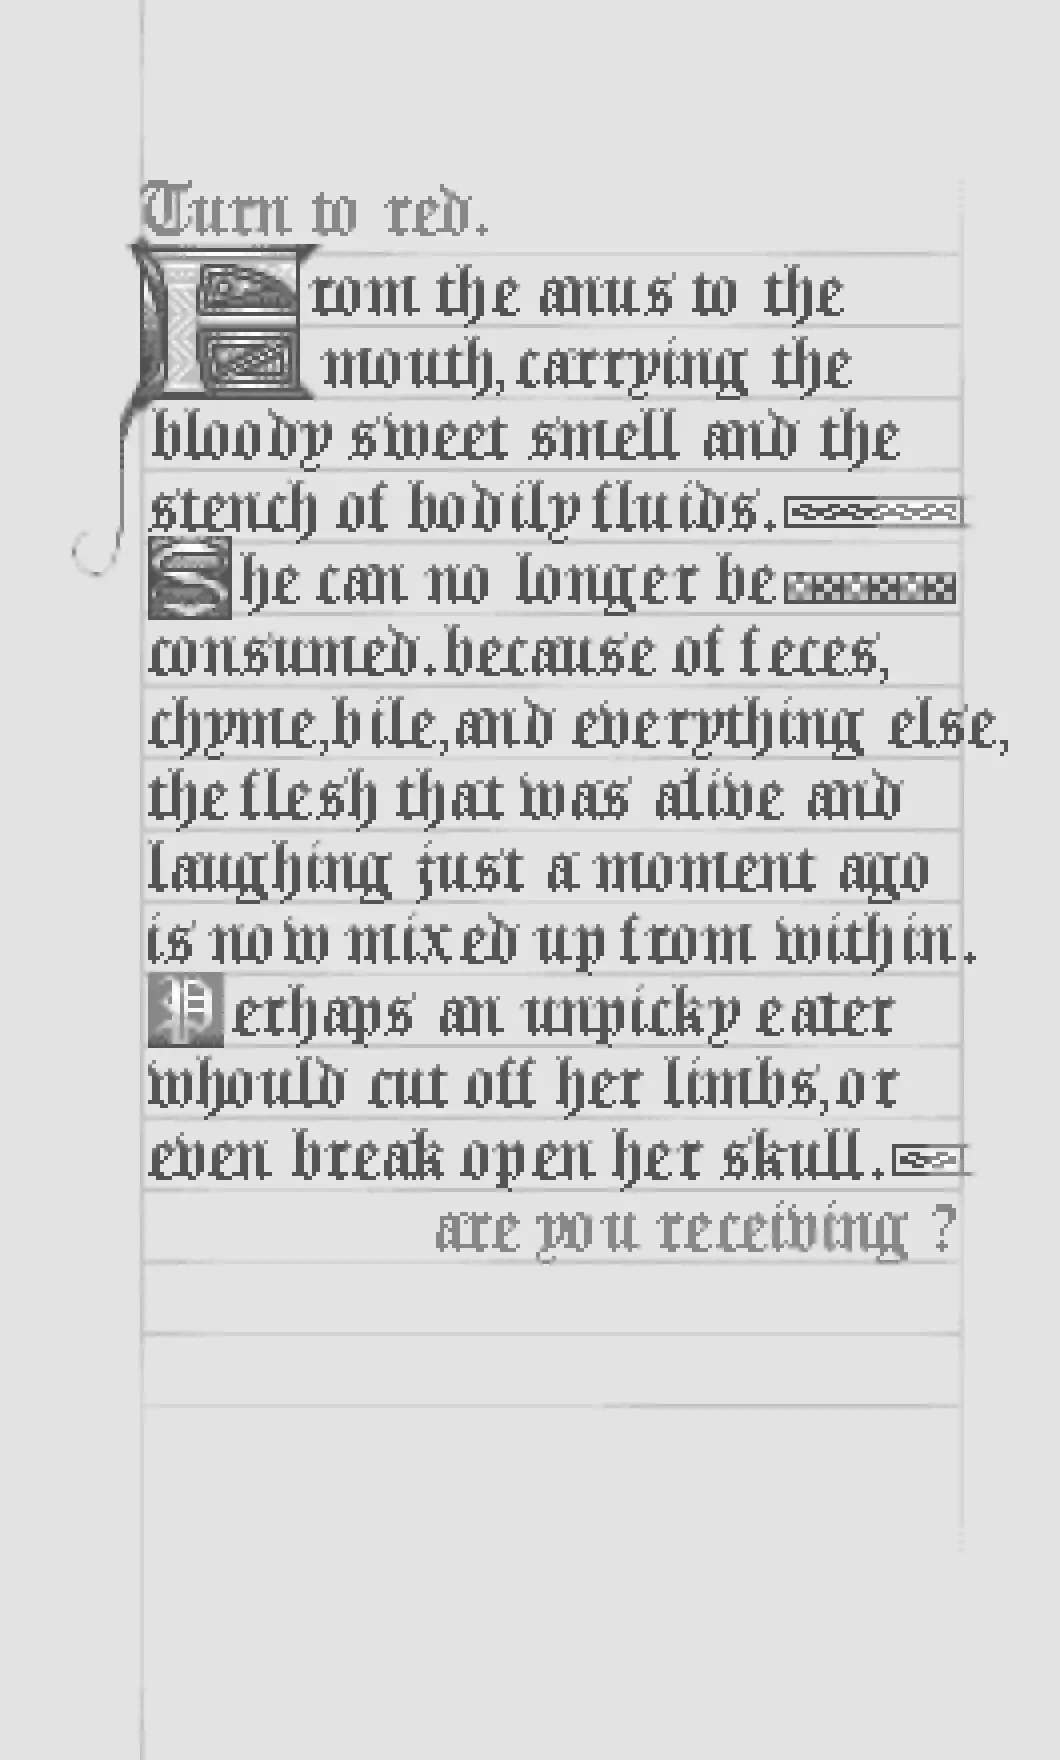 Turn to red.
From the anus to the
mouth, carrying the
bloody sweet smell and the
stench of bodily fluids.
She can no longer be
consumed. because of feces,
chyme, bile, and everything else,
the flesh that was alive and
laughing just a moment ago
is now mixed up from within.
Perhaps an unpicky eater
whould cut off her limbs, or
even break open her skull.
are you receiving ?